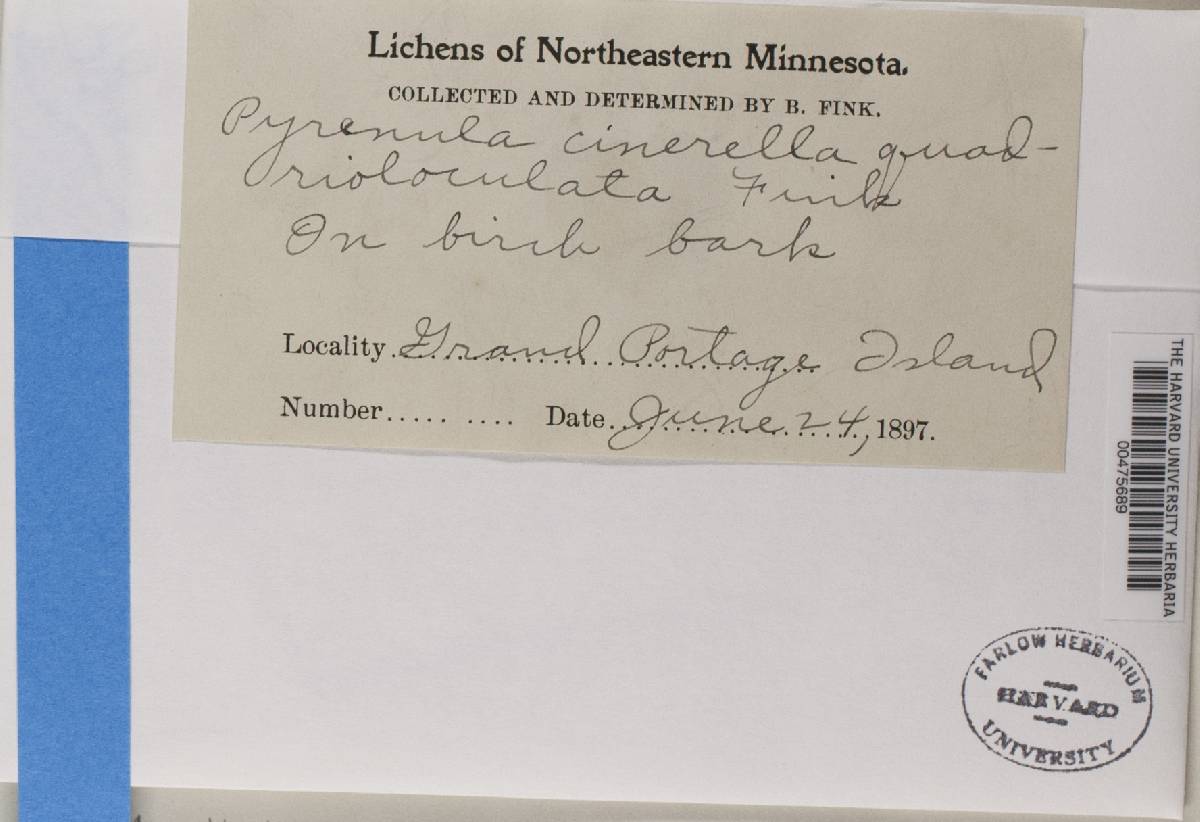 Lichens of Northeastern Minnesota.
COLLECTED AND DETERMINED BY B. FINK.
Pyrenula cinerella quad-
rioloculata Fink
On birch bark
Locality. Grand Portage Island
Number..... .... Date. June 24, 1897.
THE HARVARD UNIVERSITY HERBARIA
00475689
FARLOW HERBARIUM
HARVARD
UNIVERSITY